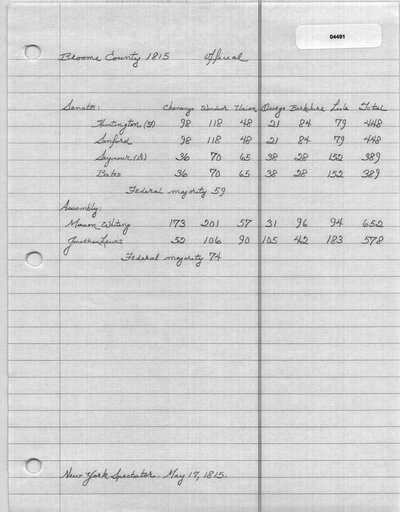 04491
Broome County 1815 Official
Senate: Chenango Windsor Union Owego Berkshire Lisle Total
Huntington (F) 98 118 48 21 84 79 448
Sanford 98 118 48 21 84 79 448
Seymour (R) 36 70 65 38 28 152 389
Bates 36 70 65 38 28 152 389
Federal majority 59
Assembly:
Mason Whiting 173 201 57 31 96 94 652
Jonathan Lewis 52 106 90 105 42 183 578
Federal majority 74
New York Spectator. May 17, 1815.